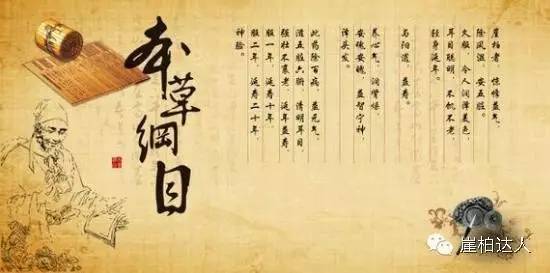 崖柏者,惊悸益气,
除风湿,安五脏。
久服,令人润泽美色,
耳目聪明,不饥不老,
轻身延年。
与阳道,益寿。
养心气,润肾燥,
安魂安魄,益智宁神,
泽头发。
此药除百病,益元气,
滋五脏六腑,清明耳目,
强壮不衰老,延年益寿,
服一年,延寿十年,
服二年,延寿二十年,
神验。
本草綱目
崖柏达人